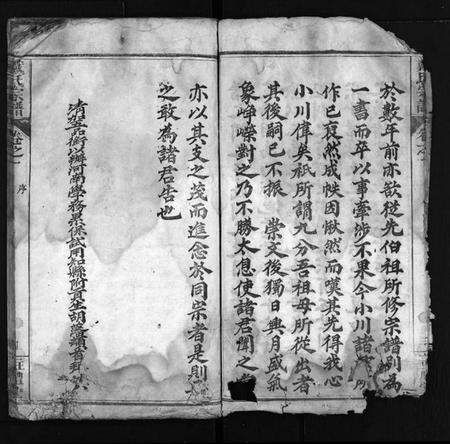 於數年前亦欲從先伯祖所修宗譜別為
一書而卒以事牽涉不果今小川諸
作已裒然成帙因愀然而嘆其先得我心
小川偉矣秖所謂九分吾祖母所從出者
其後嗣已不振 崇文後獨日興月盛氣
象崢嶸對之乃不勝太息使諸君聞之
亦以其支之茂而進念於同宗者是則
之敢為諸君告也
河南學務
試用知縣附貢生胡
氏宗譜
卷之
序